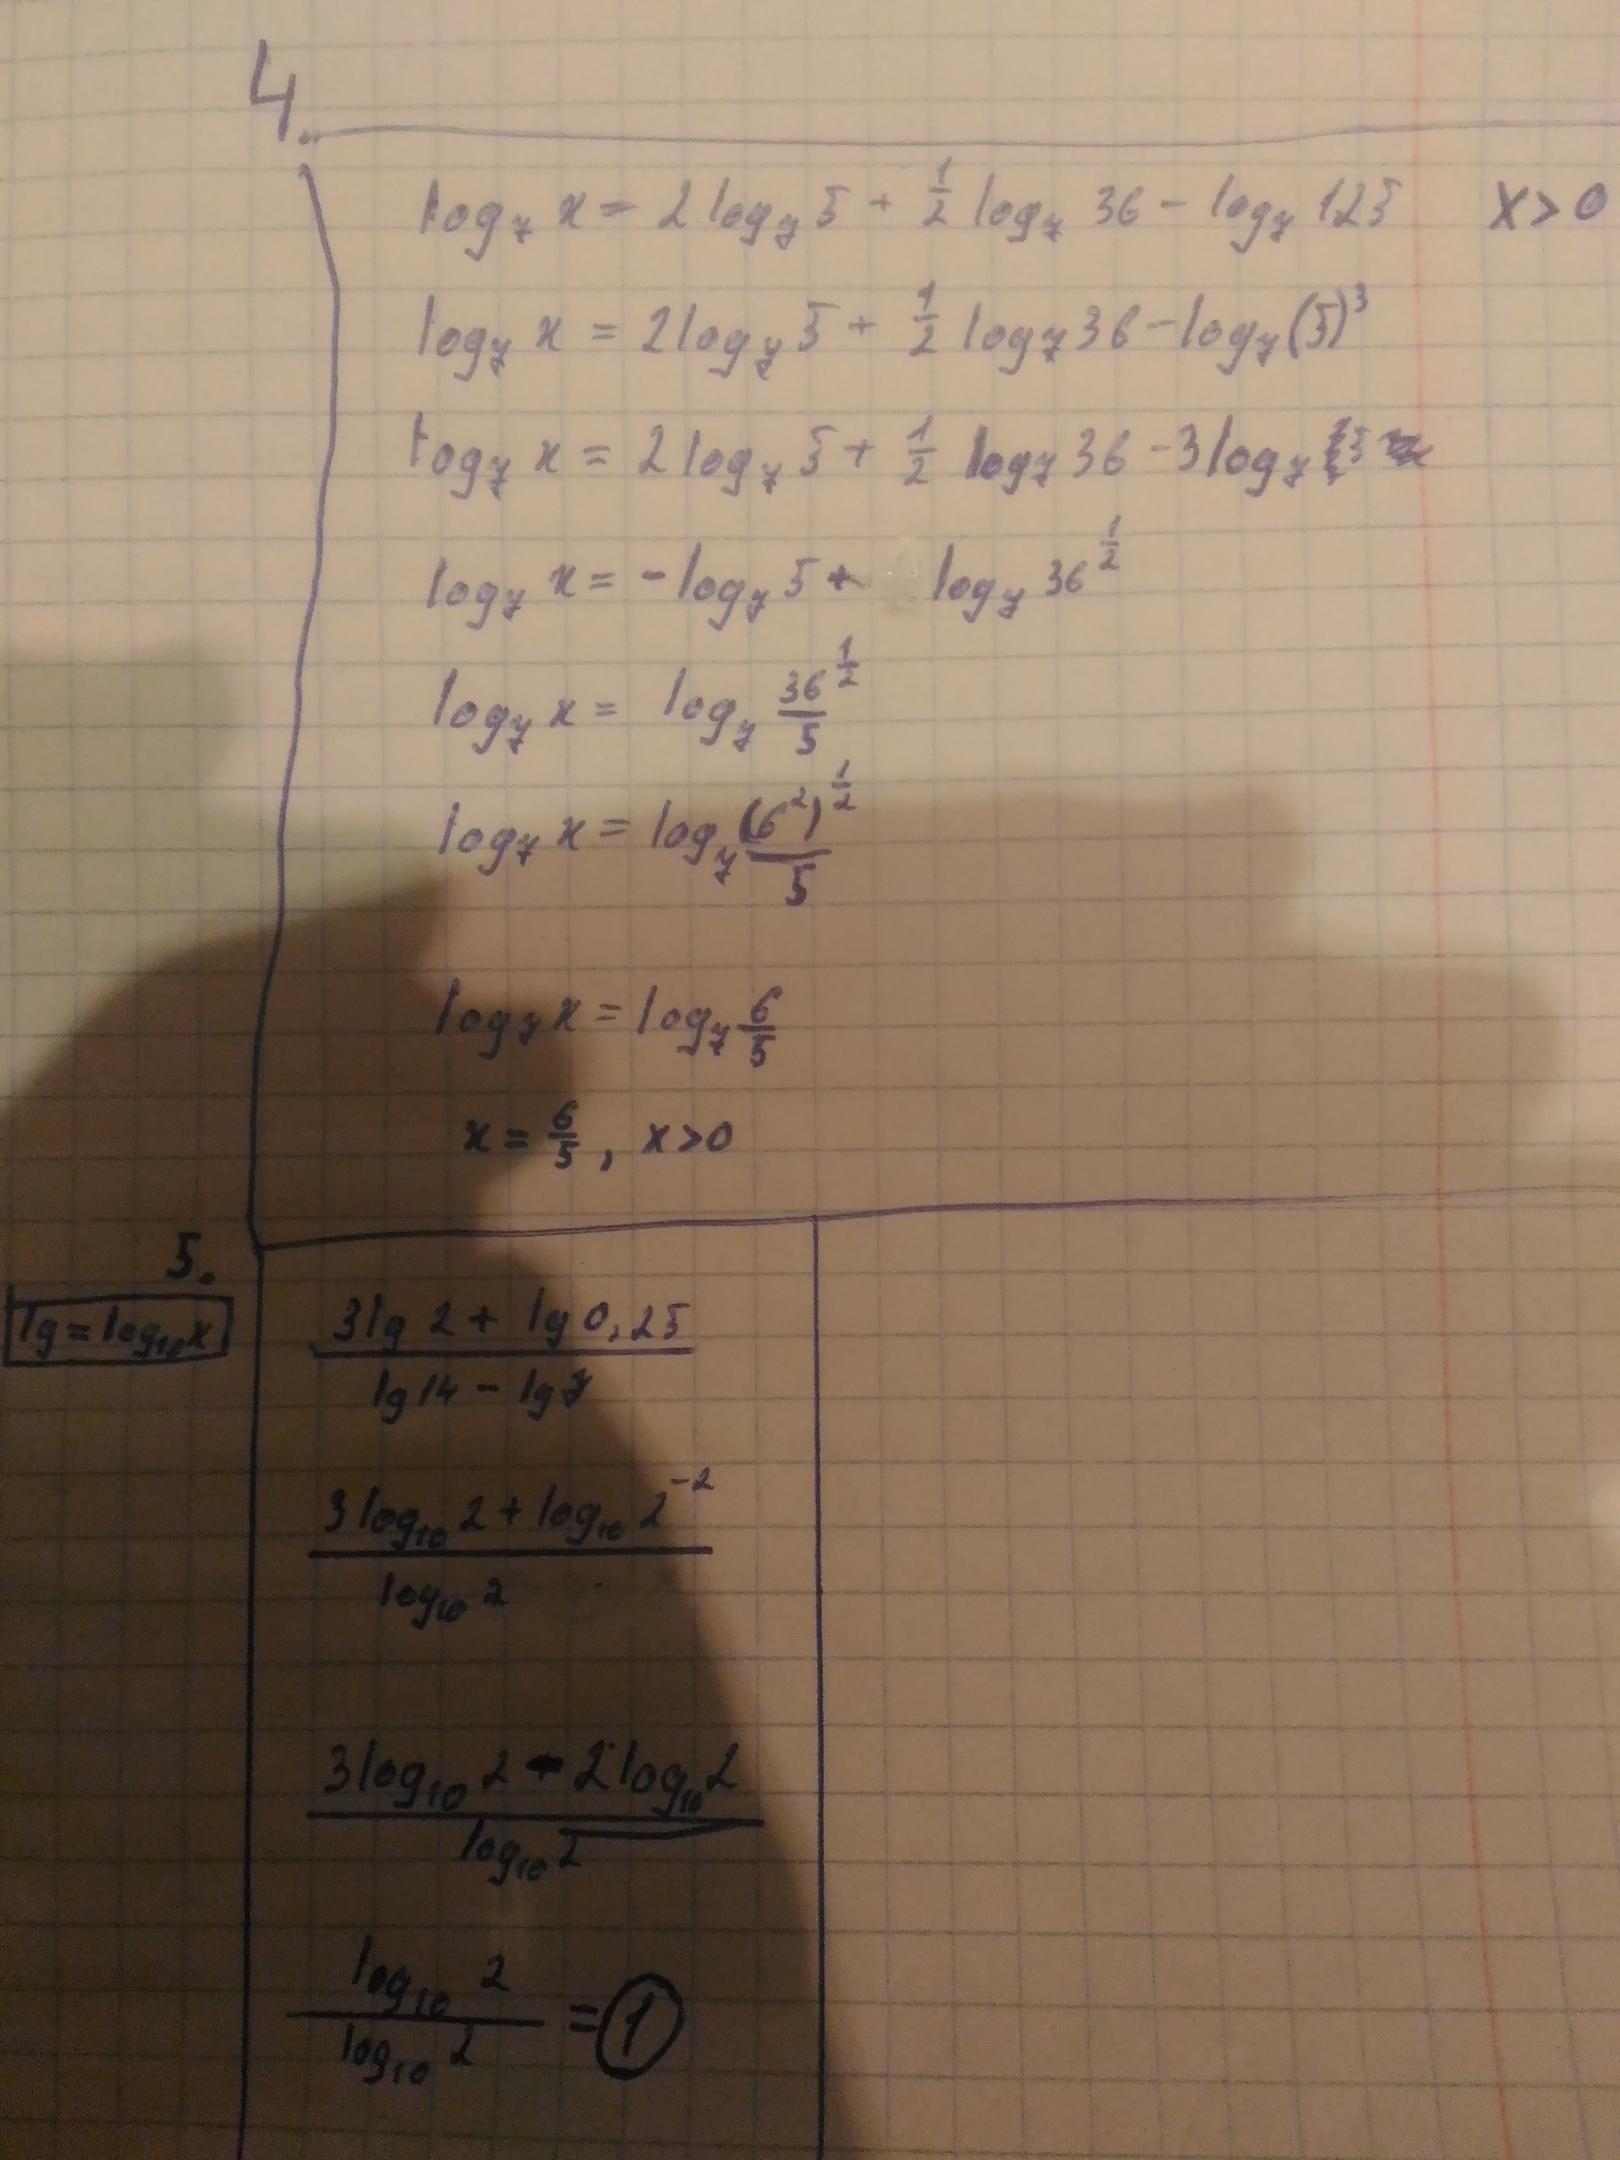 4.
log₇ x = 2 log₇ 5 + 1/2 log₇ 36 - log₇ 125 x > 0
log₇ x = 2 log₇ 5 + 1/2 log₇ 36 - log₇ (5)³
log₇ x = 2 log₇ 5 + 1/2 log₇ 36 - 3 log₇ 5
log₇ x = - log₇ 5 + log₇ 36^(1/2)
log₇ x = log₇ 36^(1/2)/5
log₇ x = log₇ (6²)^(1/2)/5
log₇ x = log₇ 6/5
x = 6/5, x > 0
5.
lg = log₁₀ x
3 lg 2 + lg 0,25
lg 14 - lg 7
3 log₁₀ 2 + log₁₀ 2⁻²
log₁₀ 2
3 log₁₀ 2 - 2 log₁₀ 2
log₁₀ 2
log₁₀ 2
log₁₀ 2 = 1